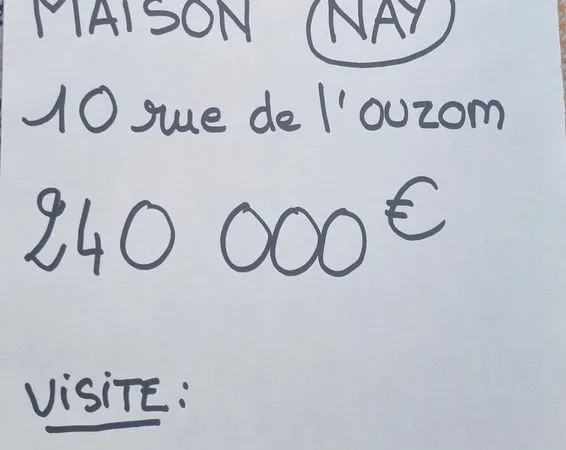 MAISON NAY
10 rue de l'ouzom
240 000 €
VISITE: